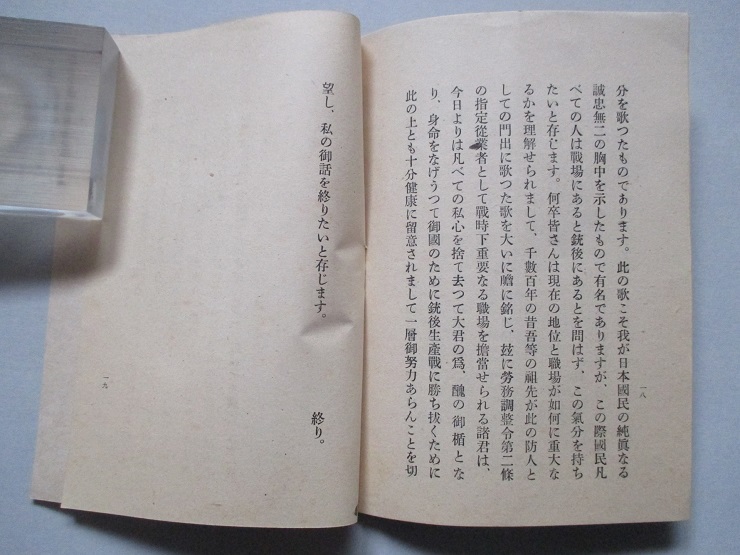 分を歌つたものであります。此の歌こそ我が日本國民の純眞なる
誠忠無二の胸中を示したもので有名でありますが、この際國民凡
べての人は戰場にあると銃後にあるとを問はず、この氣分を持ち
たいと存じます。何卒皆さんは現在の地位と職場が如何に重大な
るかを理解せられまして、千數百年の昔吾等の祖先が此の防人と
しての門出に歌つた歌を大いに贍に銘じ、玆に勞務調整令第二條
の指定從業者として戰時下重要なる職場を擔當せられる諸君は、
今日よりは凡べての私心を捨て去つて大君の爲、醜の御楯とな
り、身命をなげうつて御國のために銃後生產戰に勝ち拔くために
此の上とも十分健康に留意されまして一層御努力あらんことを切
一八
望し、私の御話を終りたいと存じます。
終り。
一九